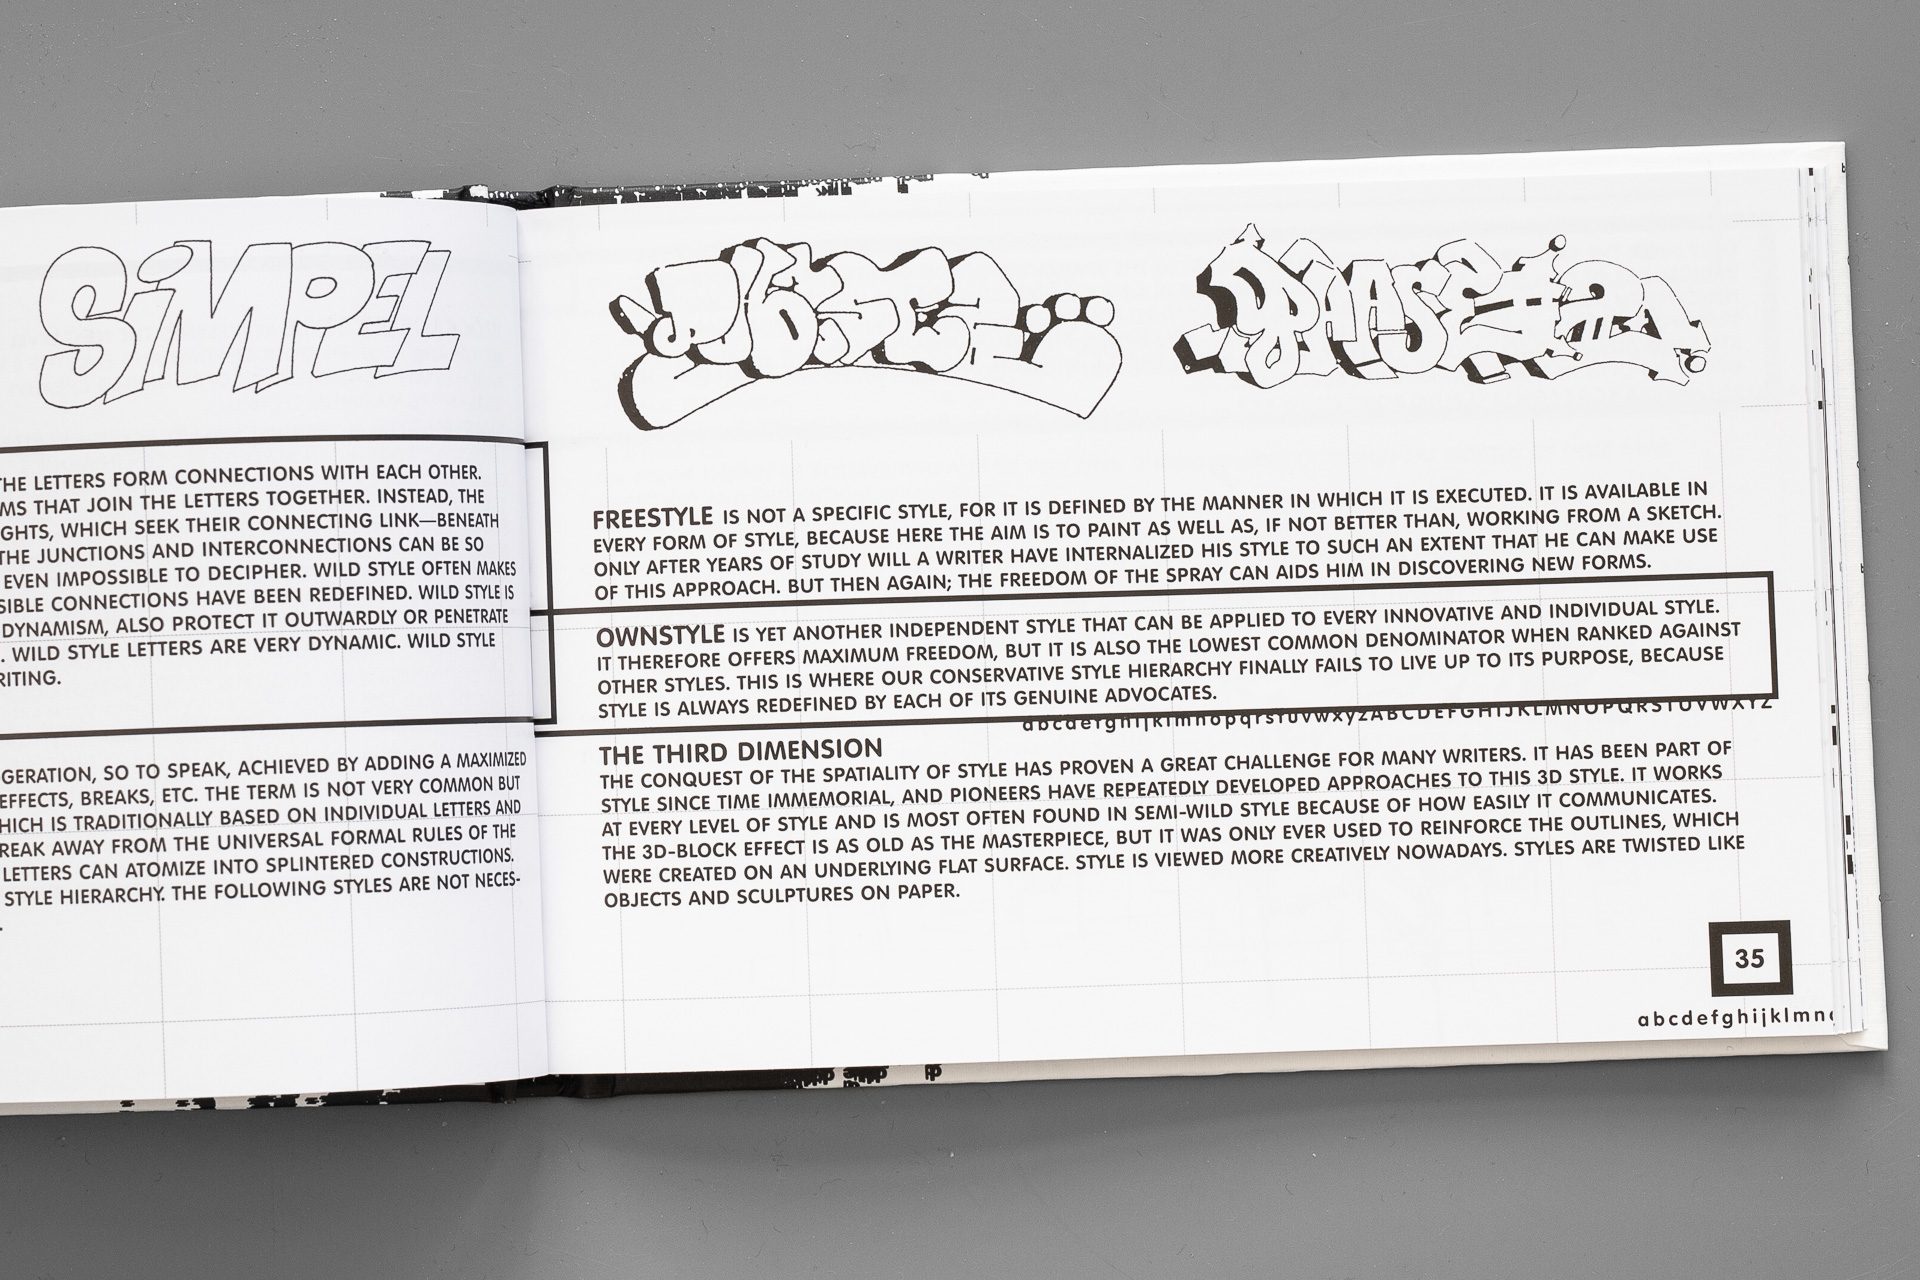 SiMPEL
THE LETTERS FORM CONNECTIONS WITH EACH OTHER.
MS THAT JOIN THE LETTERS TOGETHER. INSTEAD, THE
GHTS, WHICH SEEK THEIR CONNECTING LINK—BENEATH
THE JUNCTIONS AND INTERCONNECTIONS CAN BE SO
EVEN IMPOSSIBLE TO DECIPHER. WILD STYLE OFTEN MAKES
SIBLE CONNECTIONS HAVE BEEN REDEFINED. WILD STYLE IS
DYNAMISM, ALSO PROTECT IT OUTWARDLY OR PENETRATE
. WILD STYLE LETTERS ARE VERY DYNAMIC. WILD STYLE
RITING.
GERATION, SO TO SPEAK, ACHIEVED BY ADDING A MAXIMIZED
EFFECTS, BREAKS, ETC. THE TERM IS NOT VERY COMMON BUT
HICH IS TRADITIONALLY BASED ON INDIVIDUAL LETTERS AND
REAK AWAY FROM THE UNIVERSAL FORMAL RULES OF THE
LETTERS CAN ATOMIZE INTO SPLINTERED CONSTRUCTIONS.
STYLE HIERARCHY. THE FOLLOWING STYLES ARE NOT NECES-
PHASE 2
FREESTYLE IS NOT A SPECIFIC STYLE, FOR IT IS DEFINED BY THE MANNER IN WHICH IT IS EXECUTED. IT IS AVAILABLE IN
EVERY FORM OF STYLE, BECAUSE HERE THE AIM IS TO PAINT AS WELL AS, IF NOT BETTER THAN, WORKING FROM A SKETCH.
ONLY AFTER YEARS OF STUDY WILL A WRITER HAVE INTERNALIZED HIS STYLE TO SUCH AN EXTENT THAT HE CAN MAKE USE
OF THIS APPROACH. BUT THEN AGAIN; THE FREEDOM OF THE SPRAY CAN AIDS HIM IN DISCOVERING NEW FORMS.
OWNSTYLE IS YET ANOTHER INDEPENDENT STYLE THAT CAN BE APPLIED TO EVERY INNOVATIVE AND INDIVIDUAL STYLE.
IT THEREFORE OFFERS MAXIMUM FREEDOM, BUT IT IS ALSO THE LOWEST COMMON DENOMINATOR WHEN RANKED AGAINST
OTHER STYLES. THIS IS WHERE OUR CONSERVATIVE STYLE HIERARCHY FINALLY FAILS TO LIVE UP TO ITS PURPOSE, BECAUSE
STYLE IS ALWAYS REDEFINED BY EACH OF ITS GENUINE ADVOCATES.
abcdefghijklmnopqrstuvwxyzABCDEFGHIJKLMNOPQRSTUVWXYZ
THE THIRD DIMENSION
THE CONQUEST OF THE SPATIALITY OF STYLE HAS PROVEN A GREAT CHALLENGE FOR MANY WRITERS. IT HAS BEEN PART OF
STYLE SINCE TIME IMMEMORIAL, AND PIONEERS HAVE REPEATEDLY DEVELOPED APPROACHES TO THIS 3D STYLE. IT WORKS
AT EVERY LEVEL OF STYLE AND IS MOST OFTEN FOUND IN SEMI-WILD STYLE BECAUSE OF HOW EASILY IT COMMUNICATES.
THE 3D-BLOCK EFFECT IS AS OLD AS THE MASTERPIECE, BUT IT WAS ONLY EVER USED TO REINFORCE THE OUTLINES, WHICH
WERE CREATED ON AN UNDERLYING FLAT SURFACE. STYLE IS VIEWED MORE CREATIVELY NOWADAYS. STYLES ARE TWISTED LIKE
OBJECTS AND SCULPTURES ON PAPER.
35
abcdefghijklmn